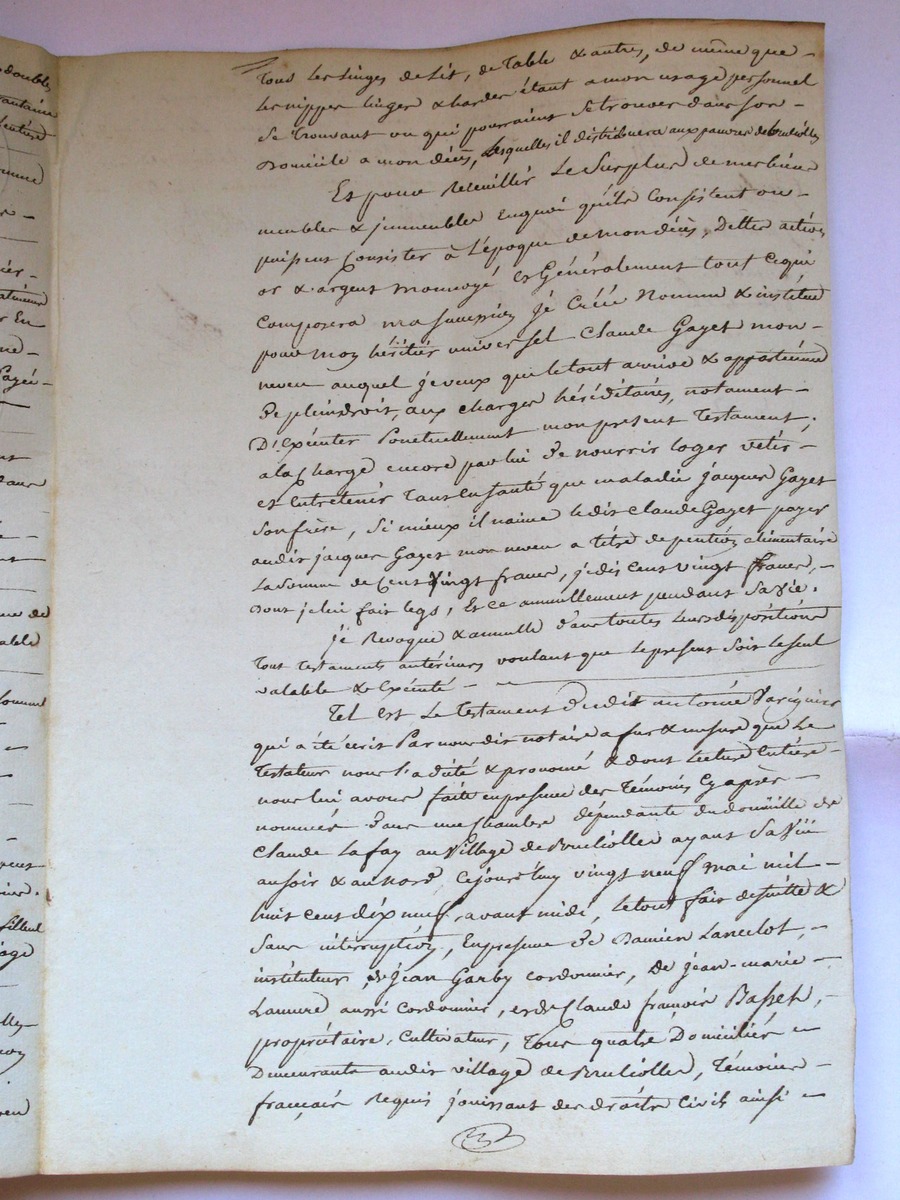 tous les linges de lit, de table & autres, de même que
les nippes linges & hardes étant a mon usage personnel
se trouvant ou qui pourraient se trouver dans son
Domicile a mon décès, lesquelles il distribuera aux pauvres de Brulliolles
Et pour recueillir le surplus de mes biens
meubles & immeubles enquoi qu'ils consistent ou
puissent consister à l'époque de mon décès, dettes actives
or & argent monnoyé et Généralement tout cequi
composera ma succession je Créée nomme & institue
pour mon héritier universel Claude Gayet mon
neveu auquel je veux que le tout arrive & appartienne
de plein droit, aux charges héréditaires, notament
D'Exécuter Ponctuellement mon present Testament,
a la Charge encore par lui de nourrir loger vétir
et Entretenir tant en santé que maladie jacques Gayet
son frère, si mieux il n'aime ledit Claude Gayet payer
audit jacques Gayet mon neveu a titre de pention alimentaire
la somme de Cent Vingt francs, je dis cent vingt francs,
dont je lui fais legs, Et ce annuellement pendant sa vie.
je Revoque & annulle dans toutes leurs dispositions
tous testaments antérieurs voulant que le present soit le seul
valable & Exécuté
Tel est le Testament dudit antoine
qui a été écrit Par nous dit notaire a fur & mesure que Le
testateur nous l'a dicté & prononcé & dont Lecture Entiere
nous lui avons faite en presence des Témoins Cyaprès
nommés dans une Chambre dépendante du domicille de
Claude Lafay au Village de Brulliolles ayant sa Vüe
au soir & au nord, Cejourd'huy vingt neuf mai mil
huit cent dix neuf, avant midi, le tout fait de suitte &
sans interruption, En presence de Damien Lancelot,
instituteur, de Jean Garby cordonnier, de jean-marie
Lamure aussi cordonnier, et de Claude françois Basset,
propriétaire, Cultivateur, tous quatre Domiciliés
Demeurants audit village de Brulliolles, Témoins
français requis jouissant des droits Civils ainsi